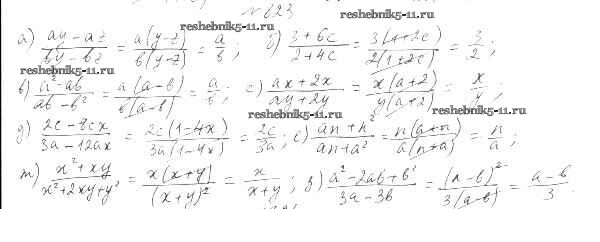 № 623
reshebnik5-11.ru
а) (ay - az)/(by - bz) = a(y-z)/b(y-z) = a/b ; б) (3+6c)/(2+4c) = 3(1+2c)/2(1+2c) = 3/2 ;
reshebnik5-11.ru reshebnik5-11.ru
в) (a² - ab)/(ab - b²) = a(a-b)/b(a-b) = a/b ; г) (ax+2x)/(ay+2y) = x(a+2)/y(a+2) = x/y ;
reshebnik5-11.ru
д) (2c - 8cx)/(3a - 12ax) = 2c(1-4x)/3a(1-4x) = 2c/3a ; е) (an+n²)/(an+a²) = n(a+n)/a(n+a) = n/a ;
reshebnik5-11.ru
ж) (x² + xy)/(x²+2xy+y²) = x(x+y)/(x+y)² = x/(x+y) ; з) (a² - 2ab + b²)/(3a - 3b) = (a-b)²/3(a-b) = (a-b)/3